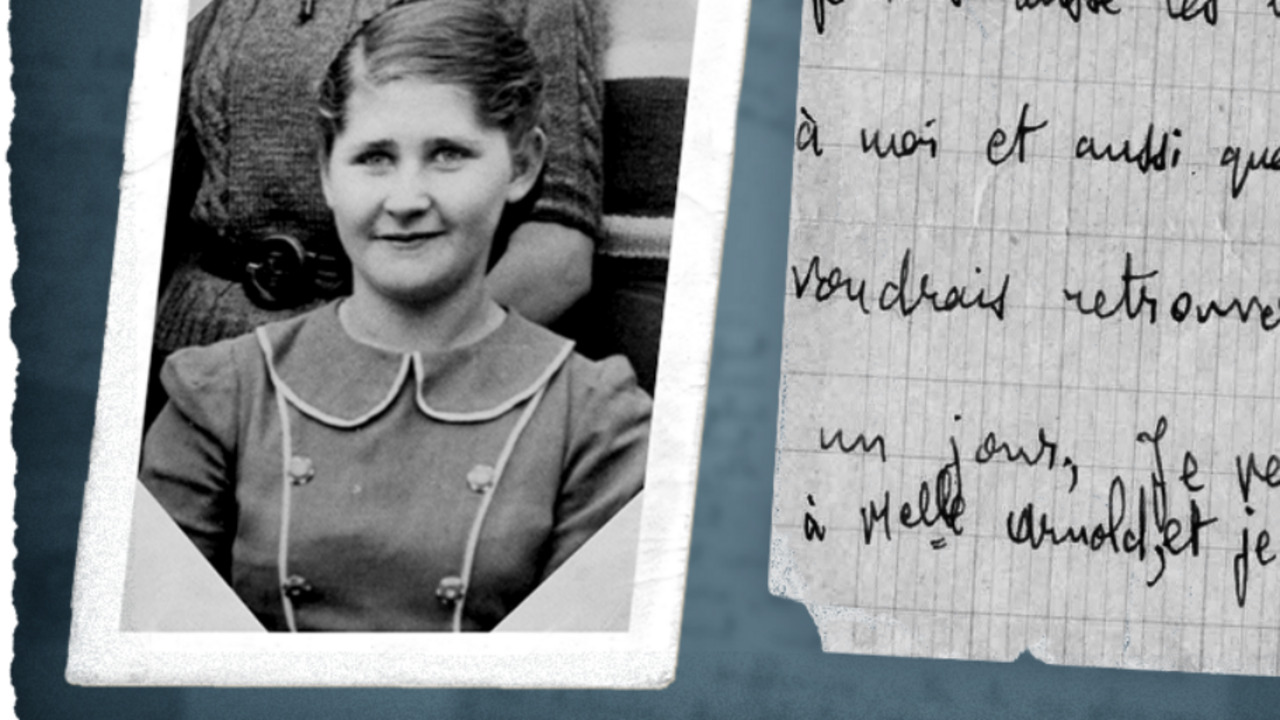 à moi et aussi que
voudrais retrouve
un jour, Je
à Melle Arnold, et je